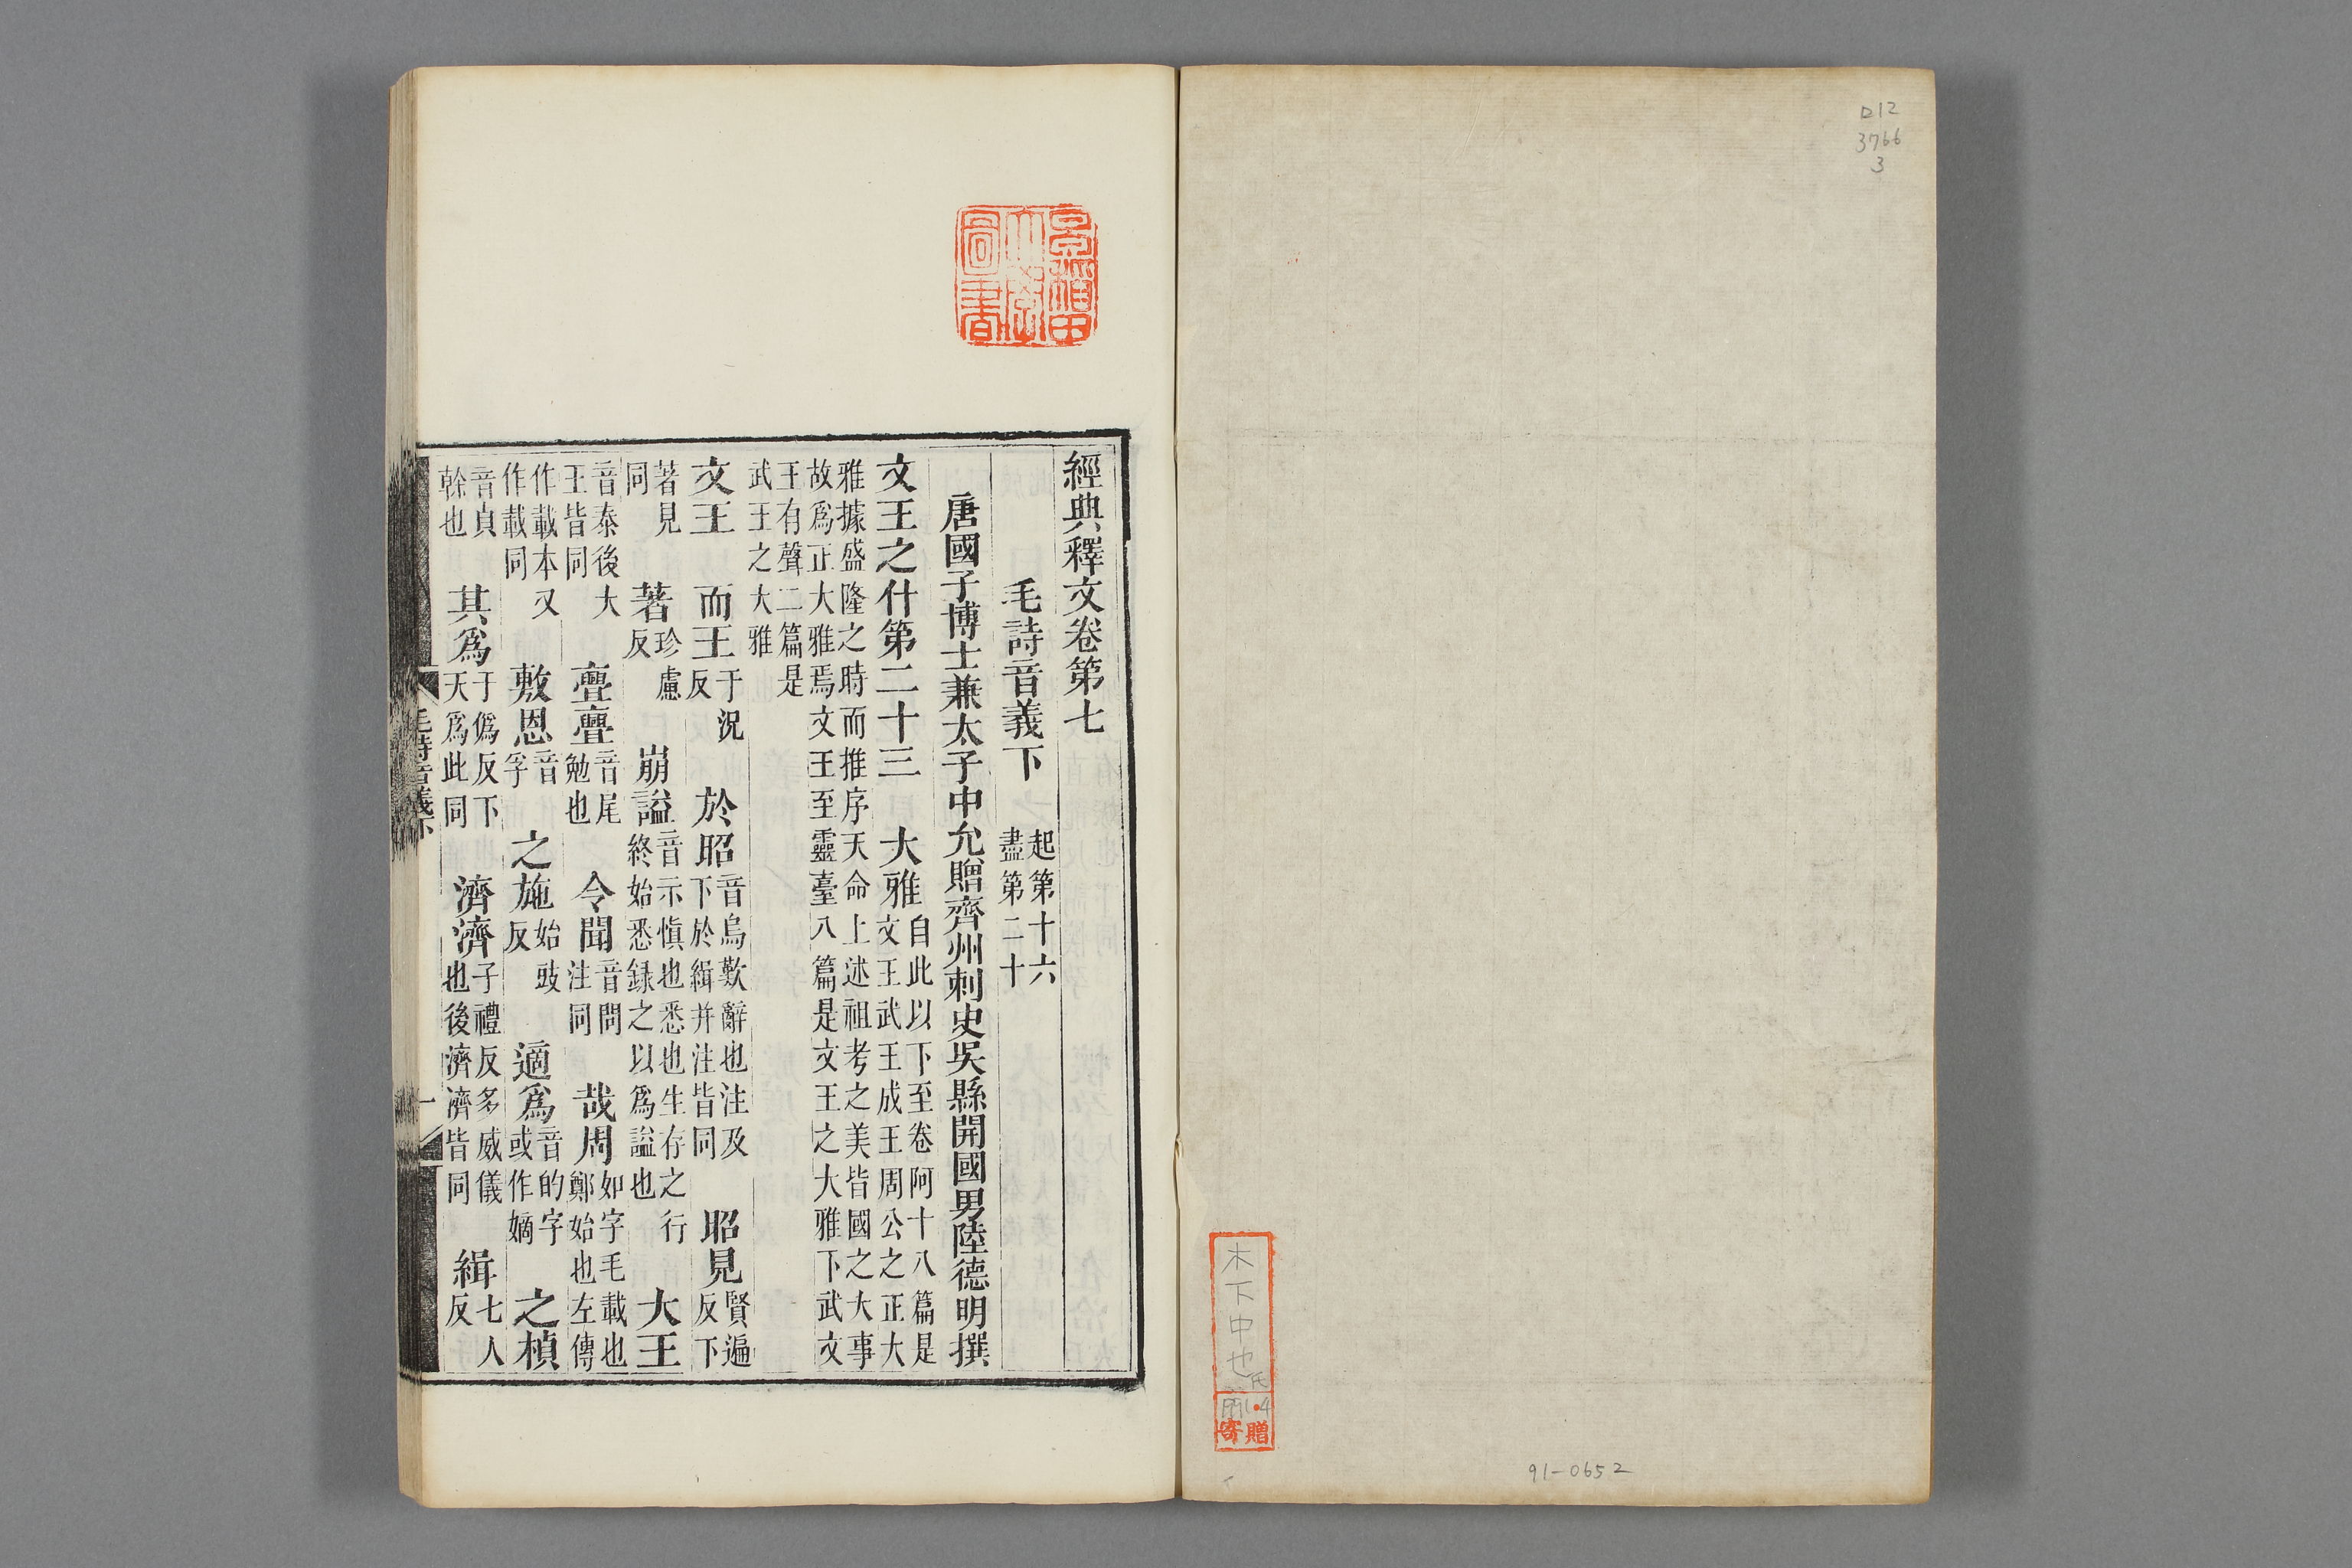 ロ12
3766
3
木下中也氏
1991.4
寄贈
91-0652
早稻田大學圖書
經典釋文卷第七
毛詩音義下 起第十六盡第二十
唐國子博士兼太子中允贈齊州刺史吳縣開國男陸德明撰
文王之什第二十三 大雅自此以下至卷阿十八篇是文王武王成王周公之正大
雅據盛隆之時而推序天命上述祖考之美皆國之大事故爲正大雅焉文王至靈臺八篇是文王之大雅下武文
王有聲二篇是武王之大雅
文王 而王于況反 於昭音烏歎辭也注及下於緝并注皆同 昭見賢遍反下
著見同 著珍慮反 崩謚音示愼也悉也生存之行終始悉録之以爲謚也 大王
音泰後大王皆同 亹亹音尾勉也 令聞音問注同 哉周如字毛載也鄭始也左傳
作載本又作載同 敷恩音孚 之施始豉反 適爲音的字或作嫡 之楨
音貞幹也 其爲于僞反下天爲此同 濟濟子禮反多威儀也後濟濟皆同 緝七人反
毛詩音義下 一